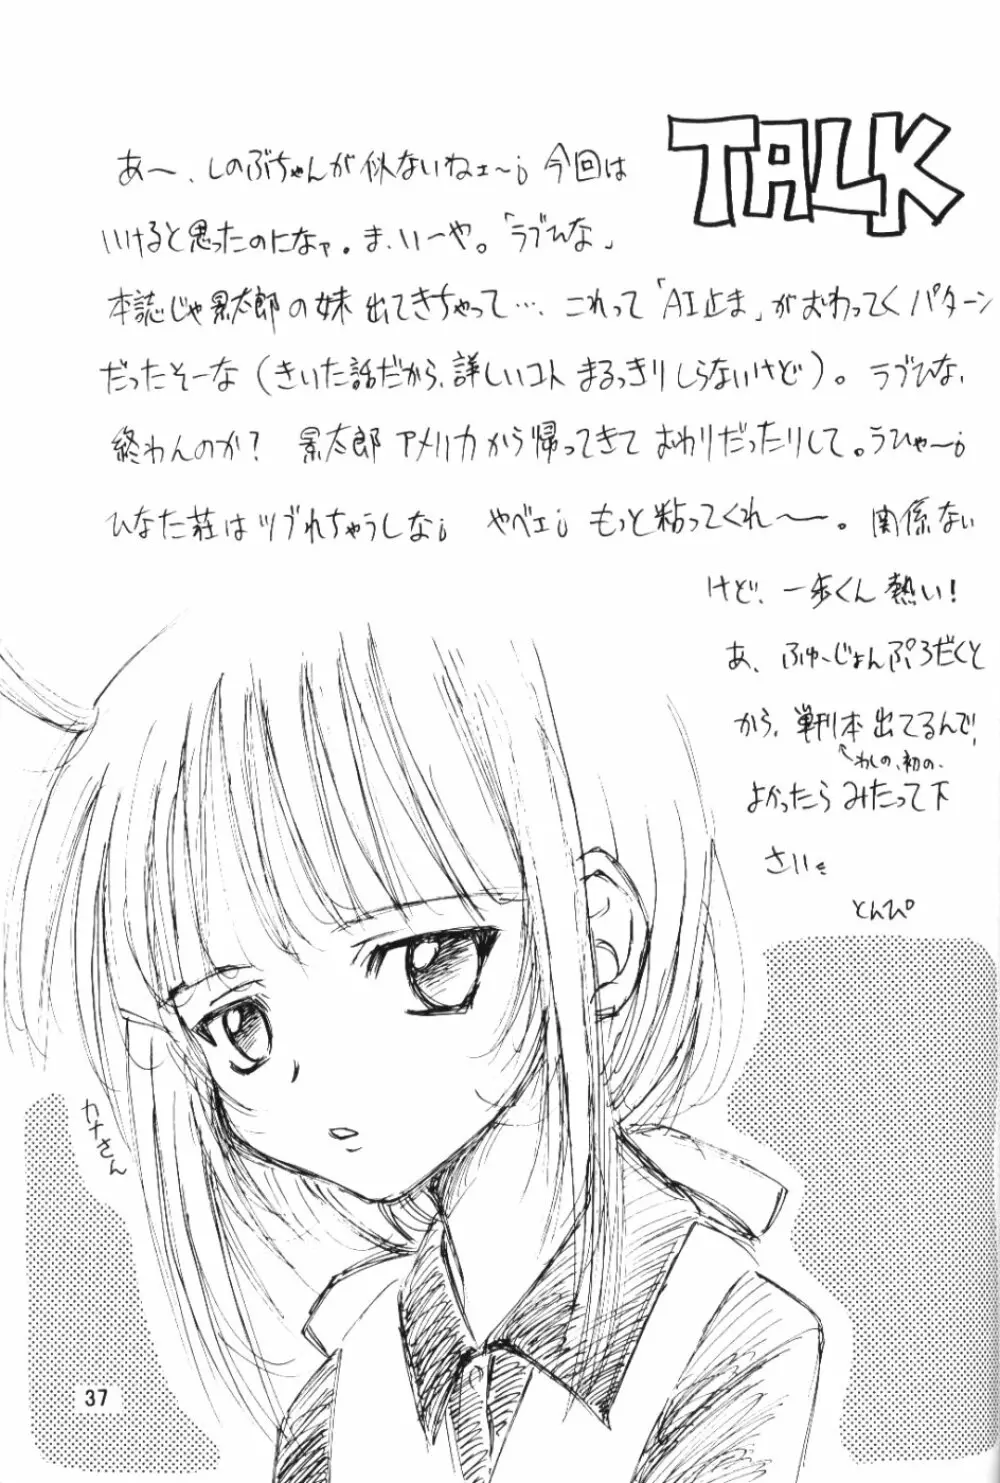 TALK
あ〜、しのぶちゃんが似ないねェ〜¡ 今回は
いけると思ったのになァ。ま、いーや。「ラブひな」
本誌じゃ景太郎の妹出てきちゃって…、これって「AI止ま」がおわってくパターン
だったそーな(きいた話だから、詳しいコト まるっきりしらないけど)。ラブひな、
終わんのか? 景太郎アメリカから帰ってきて おわりだったりして。うひゃ〜¡
ひなた荘はツブれちゃうしな¡ やべェ¡ もっと粘ってくれ〜〜。関係ない
けど、一歩くん熱い!
あ、ふゅーじょんぷろだくと
から、単刊本出てるんで、
↖わしの、初の、
よかったら みたって下
さい
とんぴ
カナさん
37